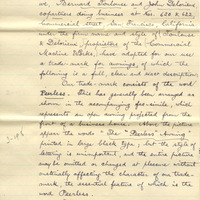 We, Bernard Toulouse and John Delorieux
copartners doing business at Nos. 620 & 622
Commercial Street San Francisco California
under the firm name and style of Toulouse
& Delorieux, proprietors of the Commercial
Machine Works, have adopted for our use
a trade-mark for awnings, of which the
following is a full, clear and exact description
Our trade-mark consists of the word
Peerless. This has generally been arranged as
shown in the accompanying fac-simile, which
represents an open awning projected from the
front of a business house. Above the picture
appear the words "The "Peerless" Awning"
printed in large block type, but the style of
lettering is unimportant, and the entire picture
may be omitted or changed at pleasure without
materially affecting the character of our trade-
mark, the essential feature of which is the
word Peerless.